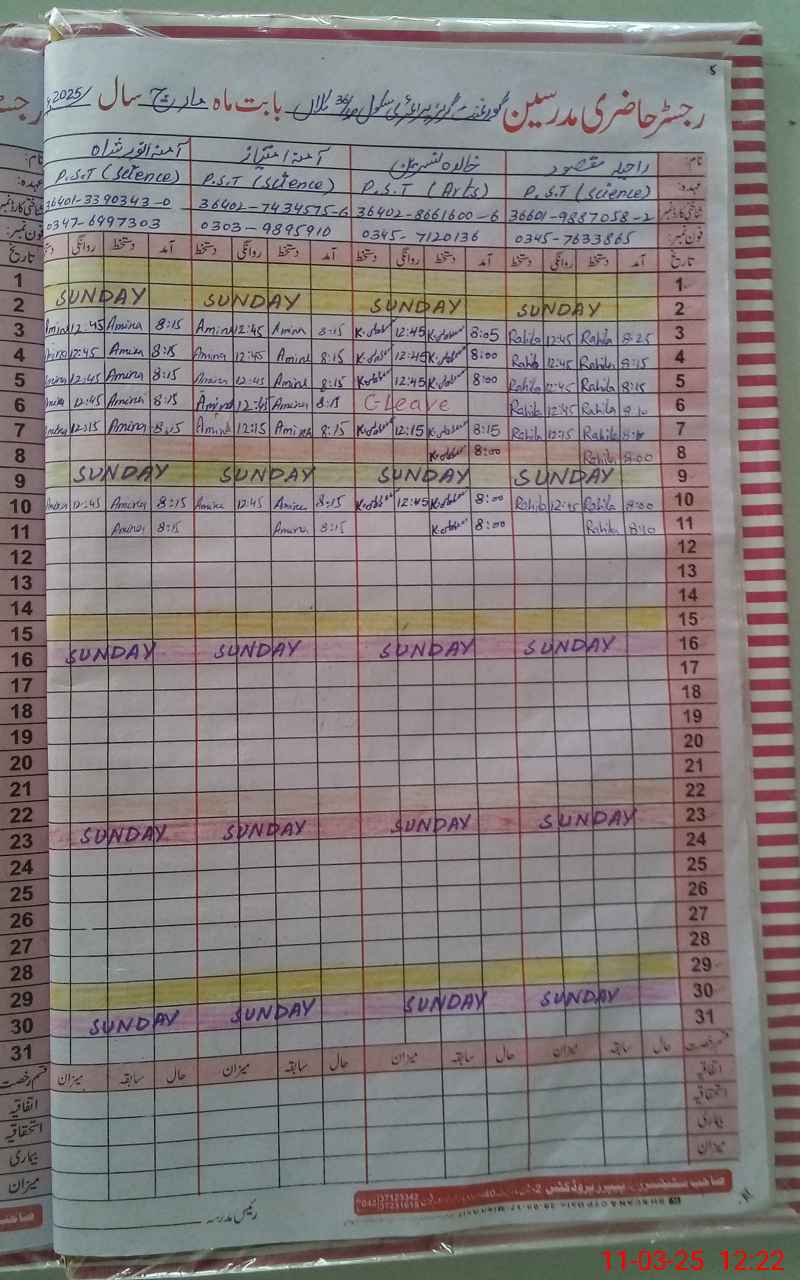 5
رجسٹر حاضری مدرسین گورنمنٹ گرلز پرائمری سکول بابت ماہ مارچ سال 2025/
نام: راحیلہ مقصود خالدہ نسرین آمنہ امتیاز آمنہ انور شاہ نام:
عہدہ: P.S.T (Science) P.S.T (Arts) P.S.T (Science) P.S.T (Science) عہدہ:
شناختی کارڈ نمبر 36601-9887058-2 36402-8661600-6 36402-7434575-6 36401-3390343-0
فون نمبر: 0345-7633865 0345-7120136 0303-9895910 0347-6997303 فون نمبر:
تاریخ آمد دستخط روانگی دستخط آمد دستخط روانگی دستخط آمد دستخط روانگی دستخط آمد دستخط روانگی تاریخ
1 1
2 SUNDAY SUNDAY SUNDAY SUNDAY 2
3 Amina 12:45 Amina 8:15 Amina 12:45 Amina 8:15 12:45 8:05 Rahila 12:45 Rahila 8:25 3
4 12:45 Amina 8:15 Amina 12:45 Amina 8:15 12:45 8:00 Rahila 12:45 Rahila 8:15 4
5 Amina 12:45 Amina 8:15 Amina 12:45 Amina 8:15 12:45 8:00 Rahila 12:45 Rahila 8:15 5
6 Amina 12:45 Amina 8:15 Amina 12:45 Amina 8:15 C-Leave Rahila 12:45 Rahila 8:10 6
7 Amina 12:15 Amina 8:15 Amina 12:15 Amina 8:15 12:15 8:15 Rahila 12:15 Rahila 7
8 8:00 Rahila 8:00 8
9 SUNDAY SUNDAY SUNDAY SUNDAY 9
10 Amina 12:45 Amina 8:15 Amina 12:45 Amina 8:15 12:45 8:00 Rahila 12:45 Rahila 8:00 10
11 Amina 8:15 Amina 8:15 8:00 Rahila 8:10 11
12 12
13 13
14 14
15 15
16 SUNDAY SUNDAY SUNDAY SUNDAY 16
17 17
18 18
19 19
20 20
21 21
22 22
23 SUNDAY SUNDAY SUNDAY SUNDAY 23
24 24
25 25
26 26
27 27
28 28
29 29
30 SUNDAY SUNDAY SUNDAY SUNDAY 30
31 31
قسم رخصت حال سابقہ میزان حال سابقہ میزان حال سابقہ میزان حال سابقہ میزان قسم رخصت
اتفاقیہ اتفاقیہ
استحقاقیہ استحقاقیہ
بیماری بیماری
میزان میزان
رئیس مدرسہ
11-03-25 12:22